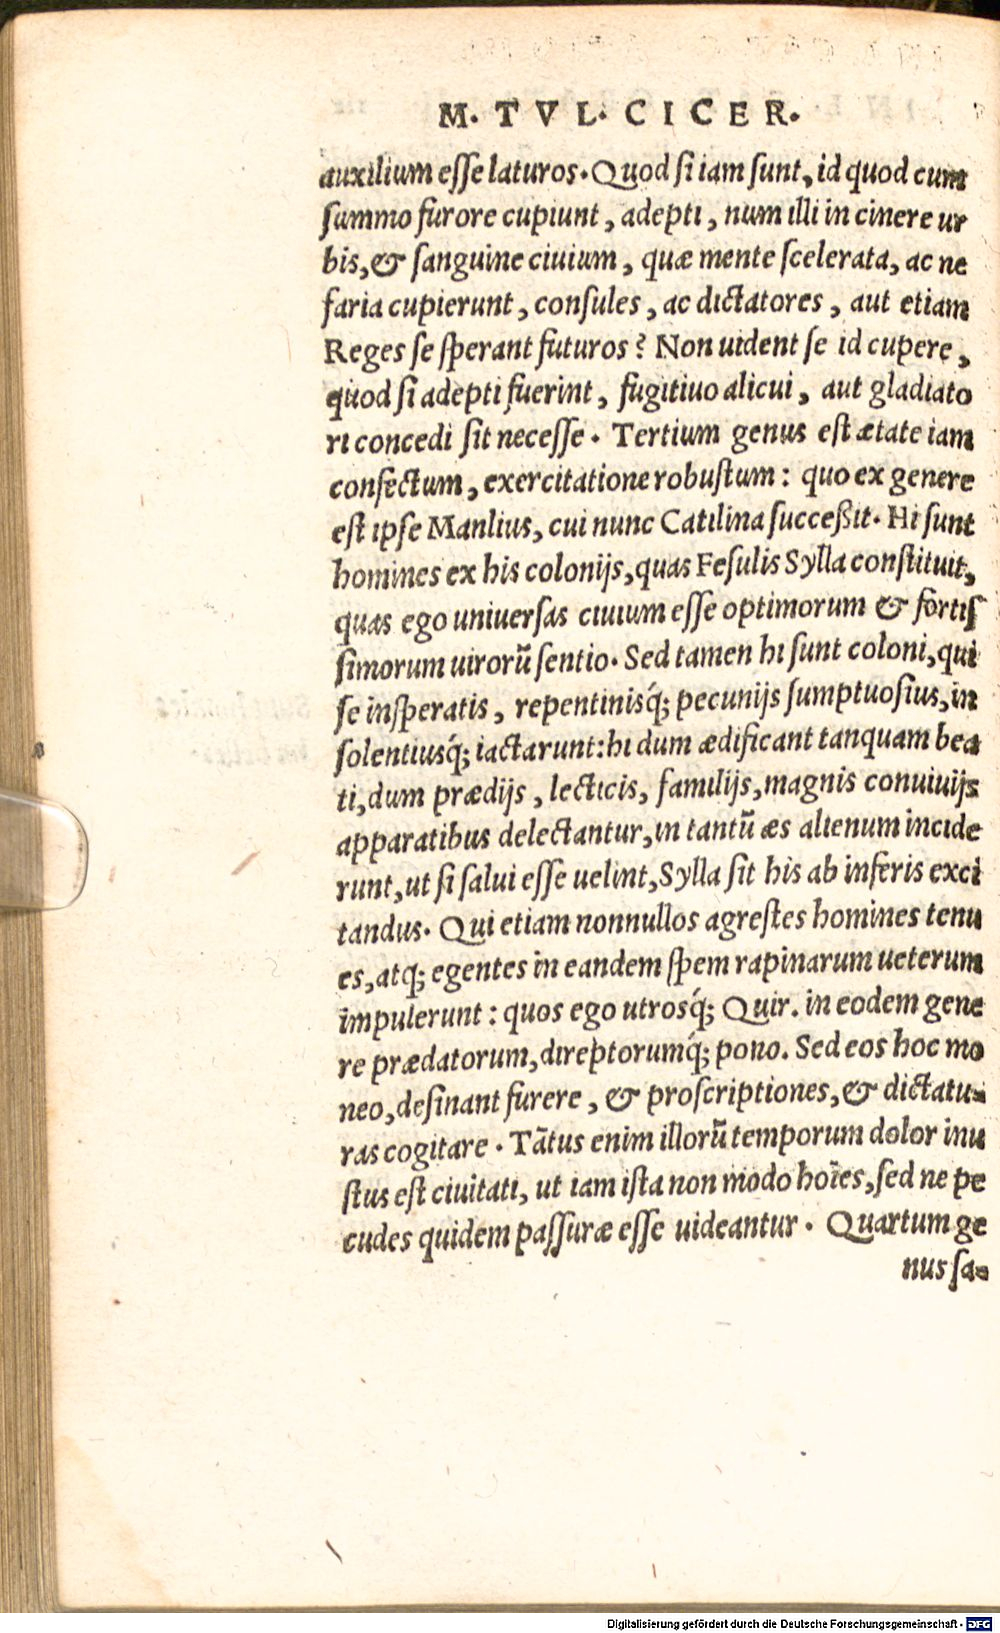 M. TVL. CICER.
auxilium eſſe laturos. Quod ſi iam ſunt, id quod cum
ſummo furore cupiunt, adepti, num illi in cinere ur
bis, & ſanguine ciuium, quæ mente ſcelerata, ac ne
faria cupierunt, conſules, ac dictatores, aut etiam
Reges ſe ſperant futuros? Non uident ſe id cupere,
quod ſi adepti fuerint, fugitiuo alicui, aut gladiato
ri concedi ſit neceſſe. Tertium genus eſt ætate iam
confectum, exercitatione robuſtum: quo ex genere
eſt ipſe Manlius, cui nunc Catilina ſucceßit. Hi ſunt
homines ex his colonijs, quas Feſulis Sylla conſtituit,
quas ego uniuerſas ciuium eſſe optimorum & fortiſ
ſimorum uirorũ ſentio. Sed tamen hi ſunt coloni, qui
ſe inſperatis, repentinisq́; pecunijs ſumptuoſius, in
ſolentiusq́; iactarunt: hi dum ædificant tanquam bea
ti, dum prædijs, lecticis, familijs, magnis conuiuijs
apparatibus delectantur, in tantũ æs alienum incide
runt, ut ſi ſalui eſſe uelint, Sylla ſit his ab inferis exci
tandus. Qui etiam nonnullos agreſtes homines tenu
es, atq; egentes in eandem ſpem rapinarum ueterum
impulerunt: quos ego utrosq́; Quir. in eodem gene
re prædatorum, direptorumq́; pono. Sed eos hoc mo
neo, deſinant furere, & proſcriptiones, & dictatu-
ras cogitare. Tãtus enim illorũ temporum dolor inu
ſtus eſt ciuitati, ut iam iſta non modo hoĩes, ſed ne pe
cudes quidem paſſuræ eſſe uideantur. Quartum ge
nus ſa-
Digitalisierung gefördert durch die Deutsche Forschungsgemeinschaft - DFG